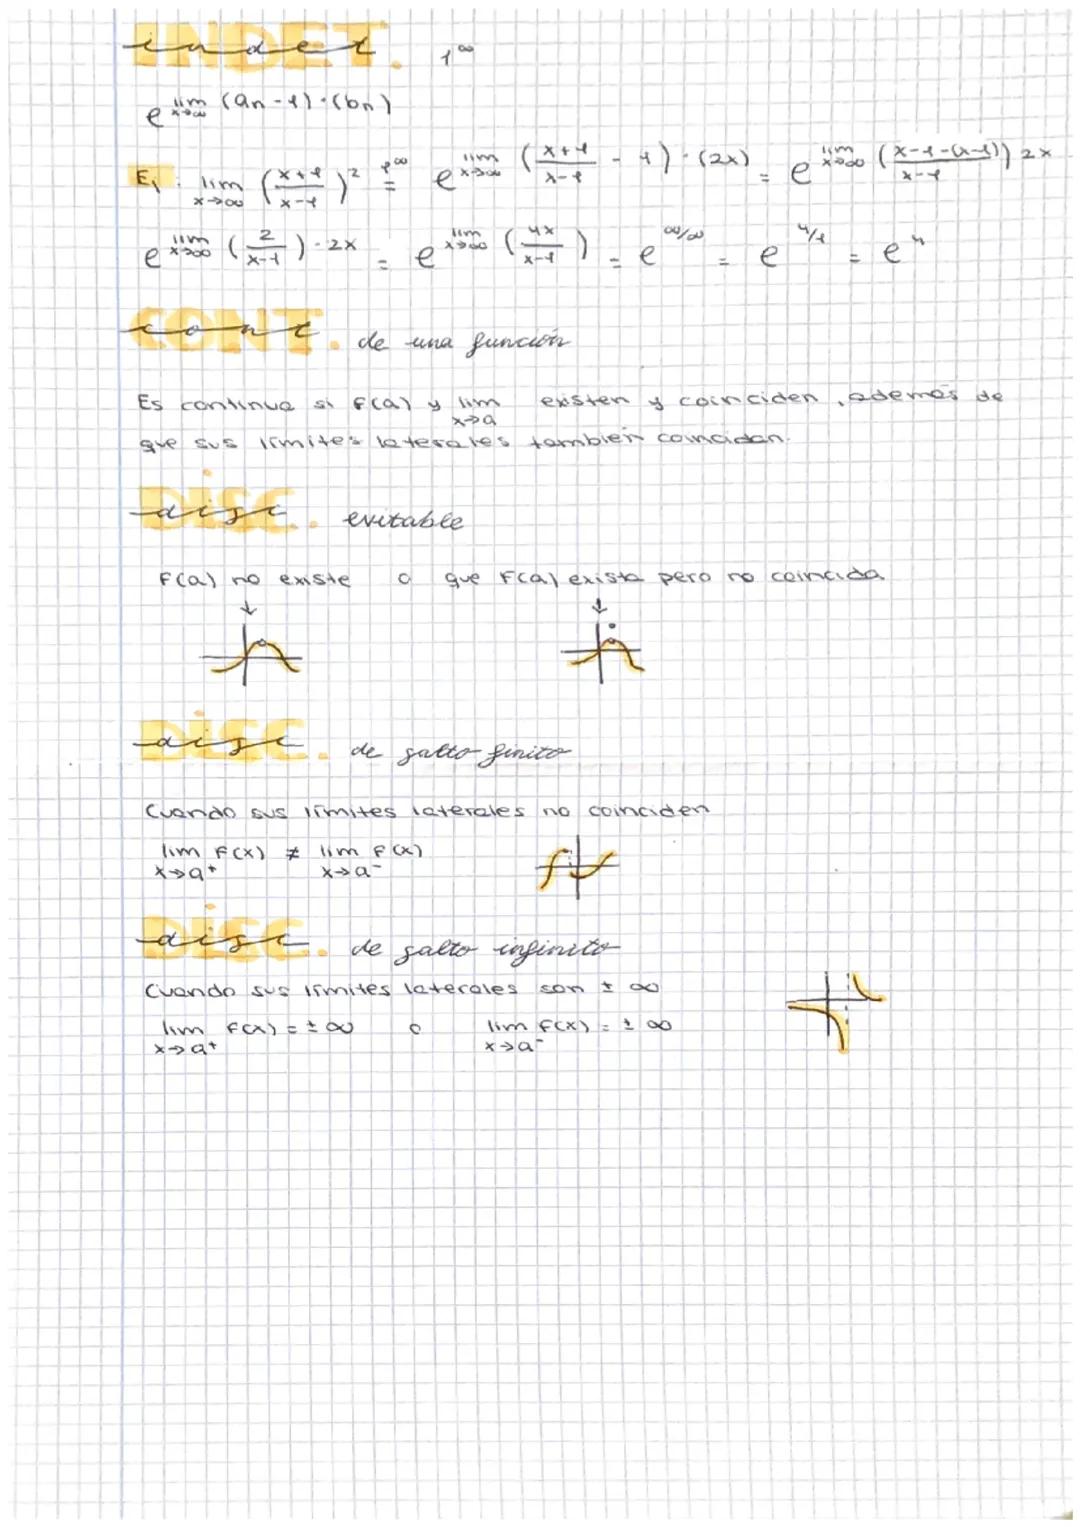 INDET. 1^∞
e^{lim x→∞ (an - 1) · (bn)}
Ej: lim x→∞ (x+1/x-1)^2 1^∞= e^{lim x→∞ (x+1/x-1 - 1) · (2x)} = e^{lim x→∞ (x-1-(x-1)/x-1) 2x}
e^{lim x→∞ (2/x-1) · 2x} = e^{lim x→∞ (4x/x-1)} = e^{∞/∞} = e^{4/1} = e^4
CONT. de una función
Es continua si F(a) y lim x→a existen y coinciden, además de
que sus límites laterales también coincidan.
DISC. evitable
F(a) no existe o que F(a) exista pero no coincida
DISC. de salto finito
Cuando sus límites laterales no coinciden
lim x→a+ F(x) ≠ lim x→a- F(x)
DISC. de salto infinito
Cuando sus límites laterales son ± ∞
lim x→a+ F(x) = ± ∞ o lim x→a- F(x) = ± ∞